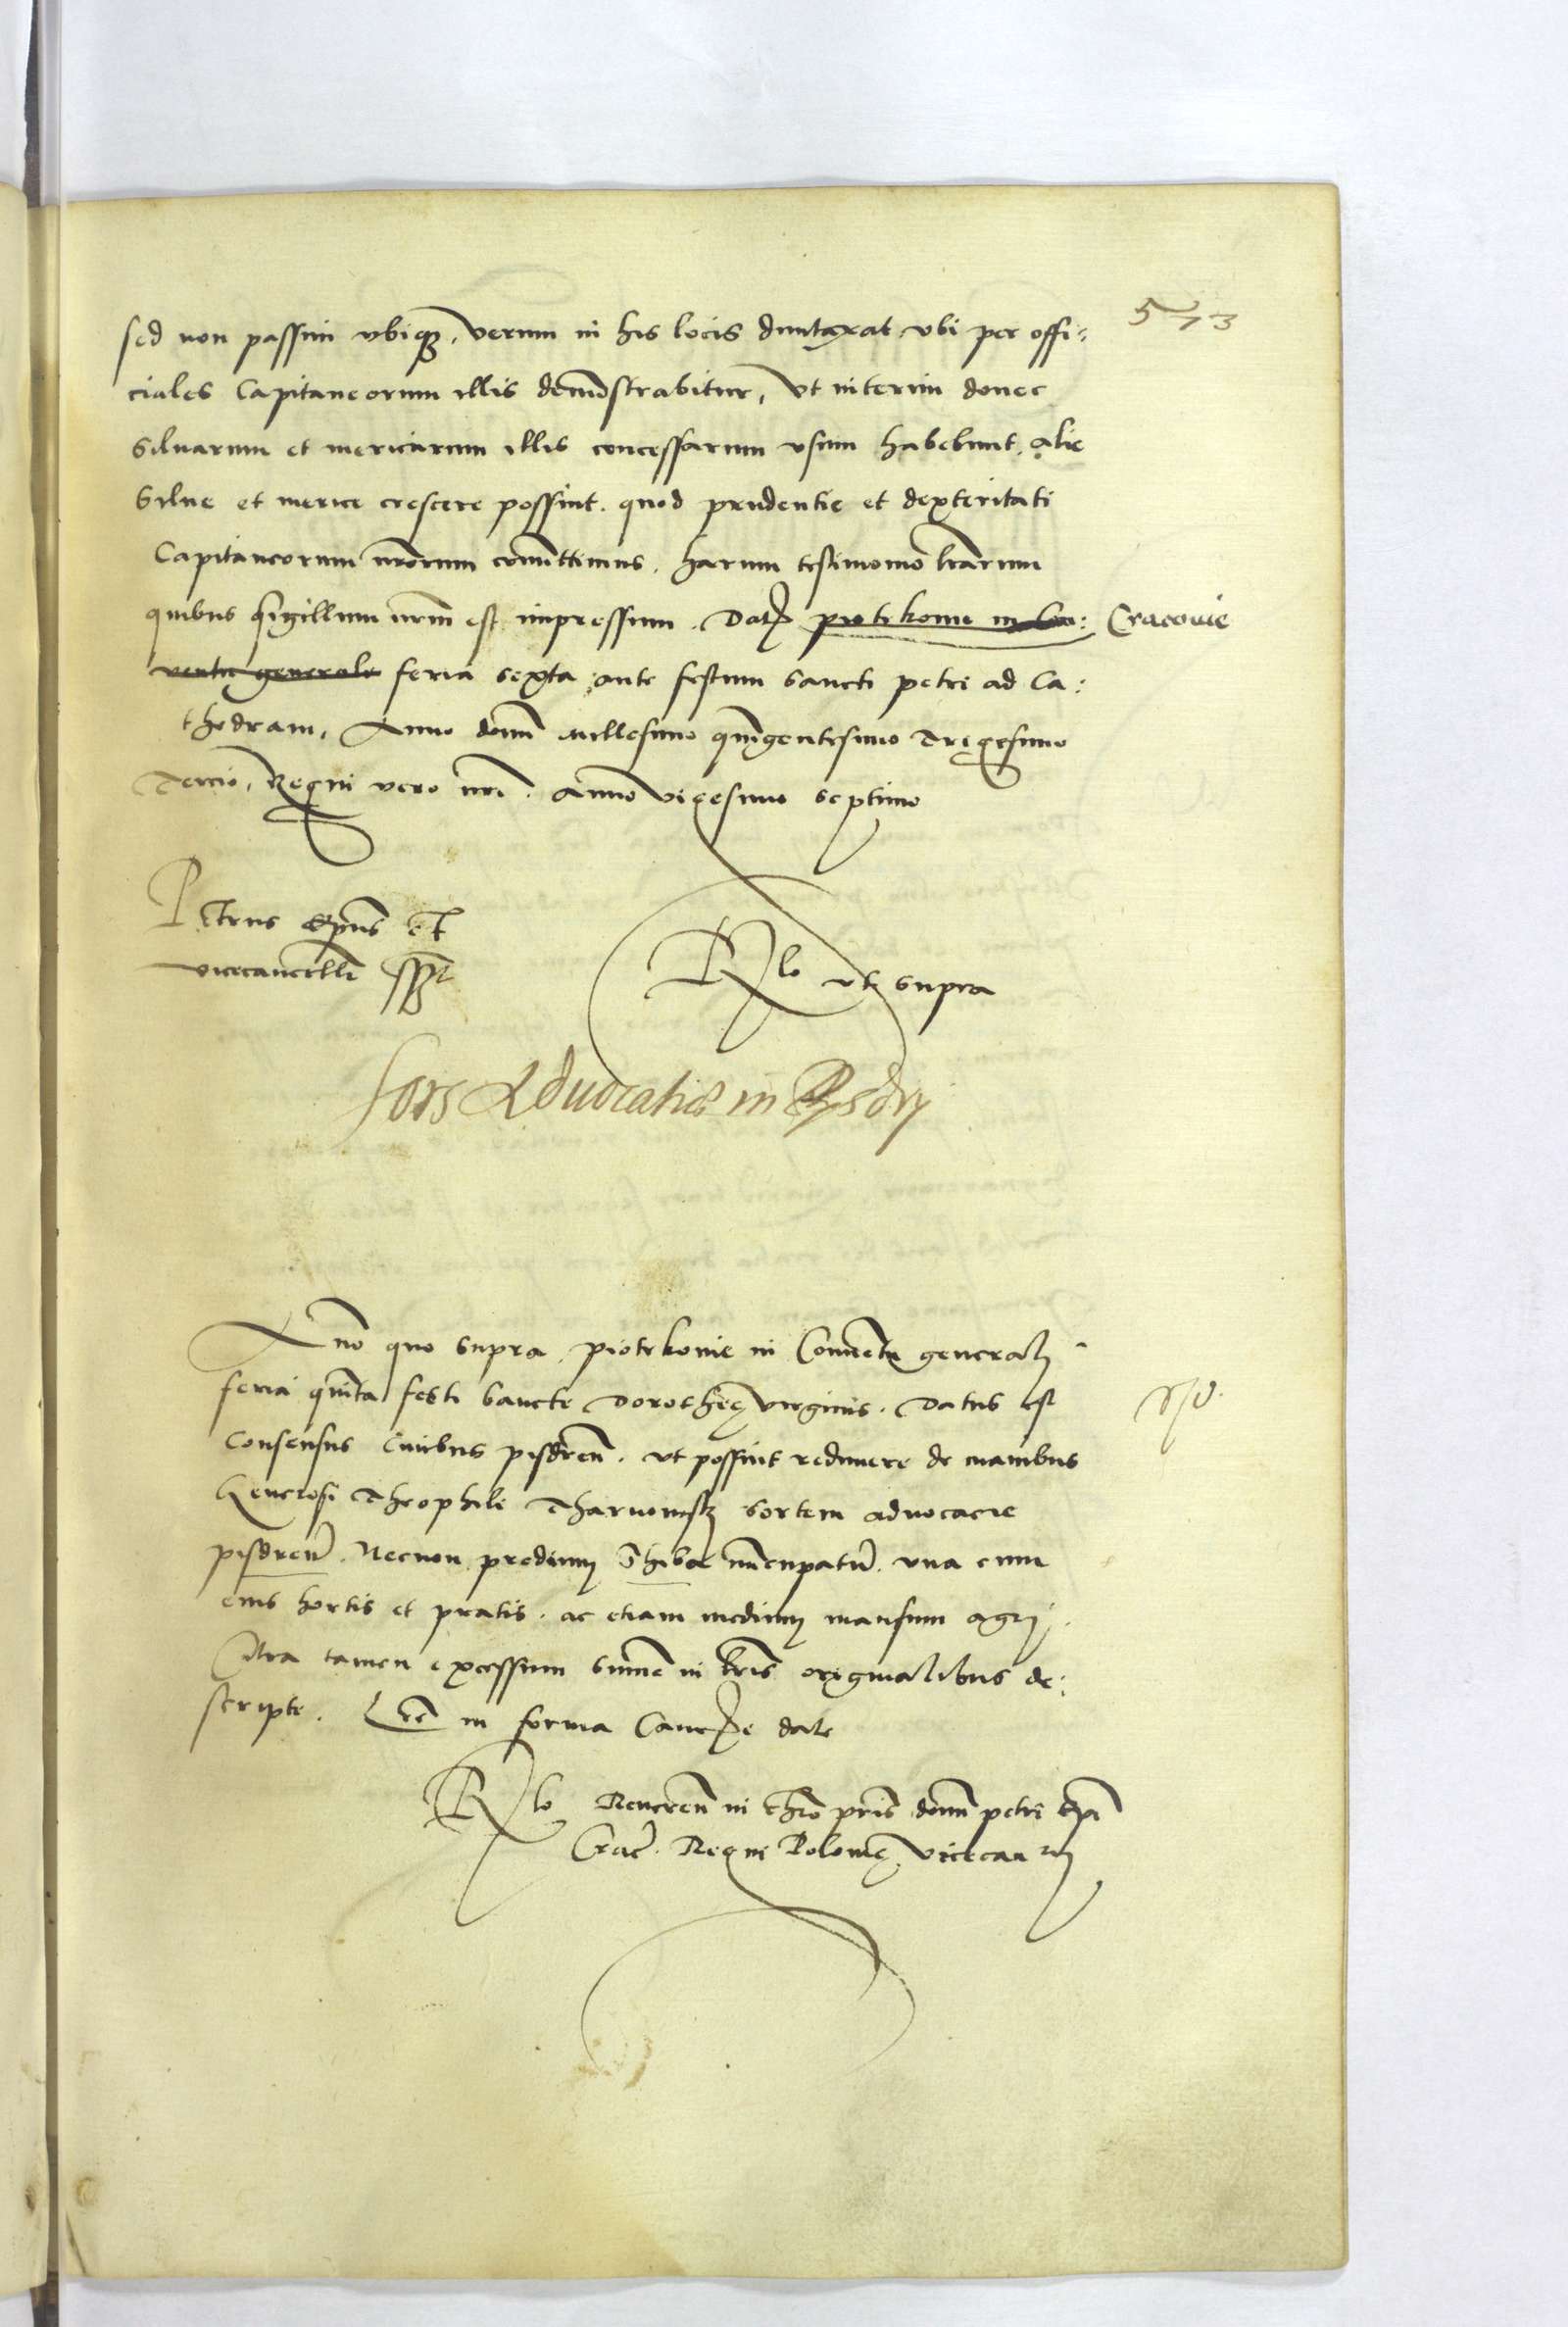 573
sed non passim vbiqz, verum in his locis duntaxat vbi per offi:
ciales Capitaneorum illis demōstrabitur, vt interim donec
siluarum et mericarum illis concessarum vsum habebunt, alie
silue et merice crescere possint. quod prudentie et dexteritati
Capitaneorum nrōrum cōmittimus, harum testimonio lrārum
quibus sigillum nrm̄ est impressum. Dat piotrkouie in Con: Cracouie
uentu generale feria sexta ante festum sancti petri ad Ca:
thedram, Anno domī millesimo quīgentesimo Trigesimo
Tercio, Regni vero nrī. Anno vigesimo septimo
Petrus Ep̄us et
vicecancell̄ sspt
Rlo vt supra
Sors Aduocatiæ in Pysdry
Anō quo supra piotrkouie in Conuētu generali
feria quīta festi sancte Dorotheę virginis. Datus est
Consensus Ciuibus pisdreñ. vt possint redimere de manibus
Generosi Theophili Tharnowsky sortem aduocacie
pisdreñ. Necnon predium Thibae nūcupatū. vna cum
eius hortis et pratis. ac etiam medium mansum agri.
Citra tamen excessum summe in lrīs originalibus de:
scripte. Lrē in forma Canc̄rie date
Rlo Reueren̄ in chrō prīs domī petri epī
Crac̄. Regni Polonię vicecanrij